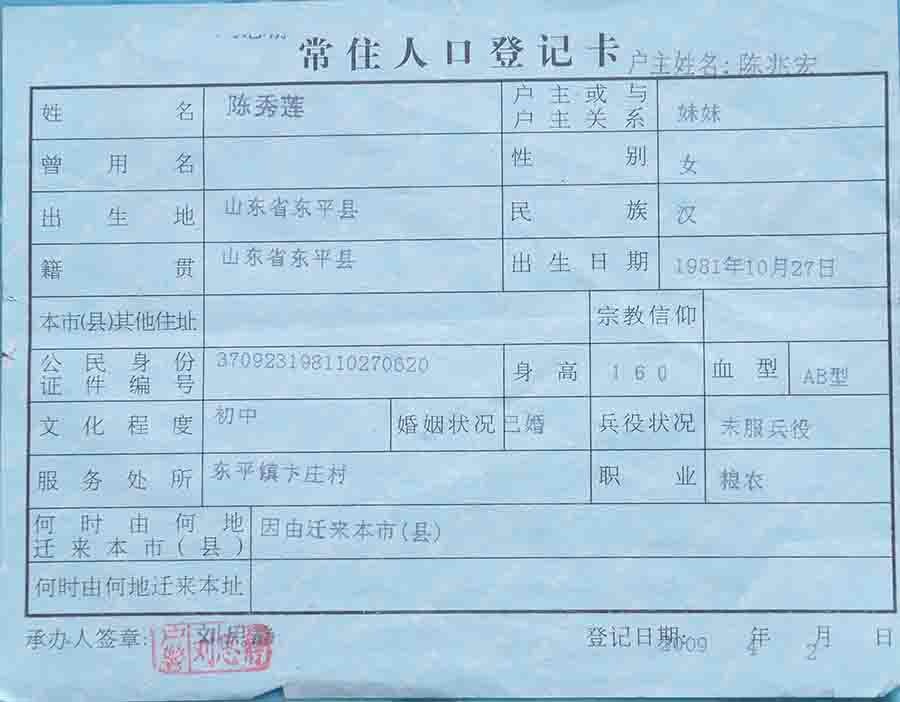 常住人口登记卡
户主姓名:陈兆宏
姓名 陈秀莲 户主或与户主关系 妹妹
曾用名 性别 女
出生地 山东省东平县 民族 汉
籍贯 山东省东平县 出生日期 1981年10月27日
本市(县)其他住址 宗教信仰
公民身份证件编号 370923198110270620 身高 160 血型 AB型
文化程度 初中 婚姻状况 已婚 兵役状况 未服兵役
服务处所 东平镇卞庄村 职业 粮农
何时由何地迁来本市(县) 因由迁来本市(县)
何时由何地迁来本址
承办人签章: 登记日期: 2009年4月2日